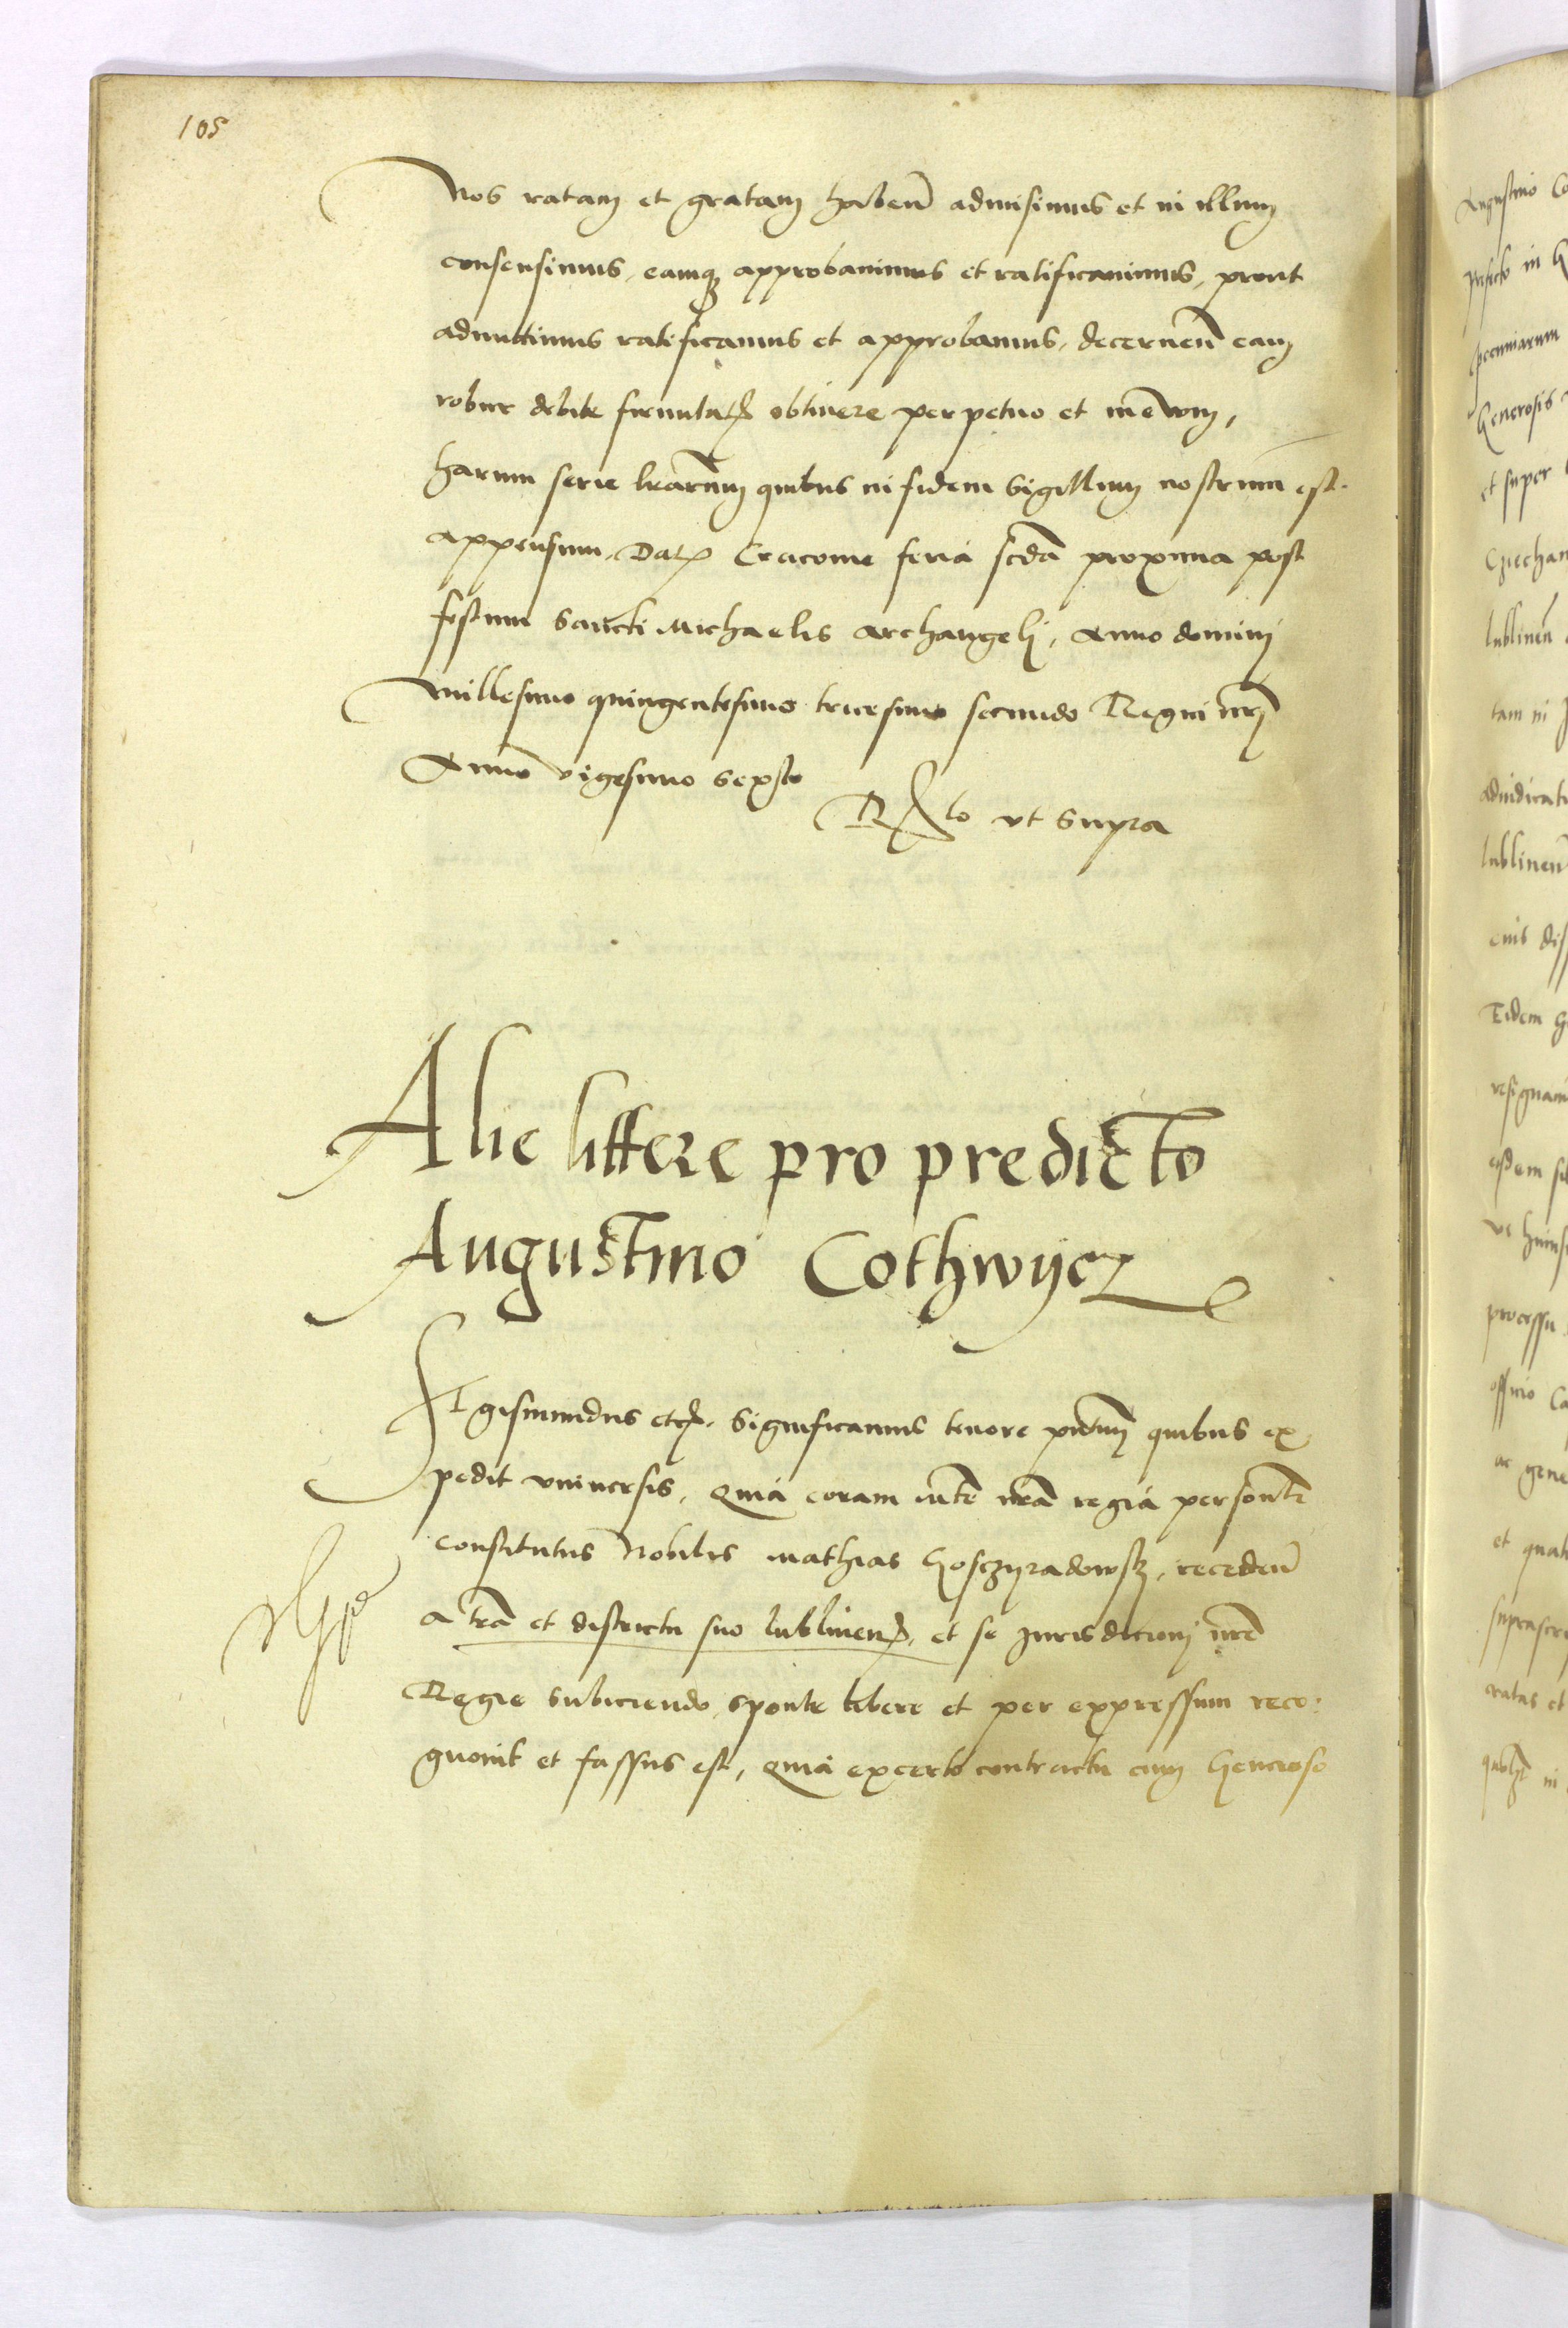 105
Nos ratam et gratam haben̄ admisimus et in illum
consensimus, eamq; approbavimus et ratificavimus, prout
admittimus ratificamus et approbamus, decernen̄ eam
robur debite firmitat̄ obtinere perpetuo et in evum,
harum serie lr̄arum quibus in fidem Sigillum nostrum est
appensum. Dat̄ Cracovie feria scd̄a proxima post
festum Sancti Michaelis archangeli, Anno domini
Millesimo quingentesimo tricesimo secundo Regni nr̄i
Anno vigesimo sexto
R̄to vt supra
Alie littere pro predicto
Augustino Cothwycz
Sigismundus etc̄. Significamus tenore pn̄tium quibus ex-
pedit vniuersis, Quia coram mte nr̄a regia personlr̄
constitutus Nobilis Mathias Gosczyradowsky, receden̄
a tr̄a et districtu suo lublinen̄, et se Jurisdicioni nr̄e
Regie subiiciendo, sponte libere et per expressum reco-
gnovit et fassus est, Quia ex certo contractu cum Generoso
Augustino
in
pecuniarum
Generosis
et super
Czechan
lublinen̄
tam in
adiudicat
lublinen̄
eius dis
Eidem G
resignavi
eisdem
vt huius
processu
officio Ca
ac gene
et quat
suprascri
ratas et
in